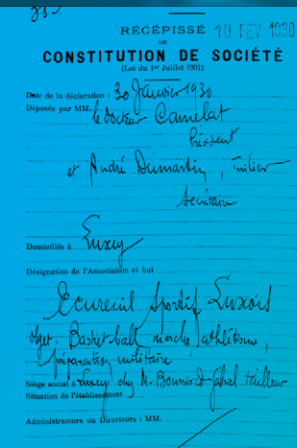 RÉCÉPISSÉ 10 FEV 1930
DE
CONSTITUTION DE SOCIÉTÉ
(Loi du 1er Juillet 1901)
Date de la déclaration : 30 Janvier 1930
Déposée par MM. le Docteur Camelat
Président
et André Dumartin, Tuilier
Secrétaire
Domiciliés à Luxey
Désignation de l'Association et but
Ecureuil Sportif Luxois
objet : Basket-ball marche, athlétisme,
préparation militaire
Siège social à Luxey chez Mr Gabriel tailleur
Situation de l'établissement
Administrateurs ou Directeurs : MM.